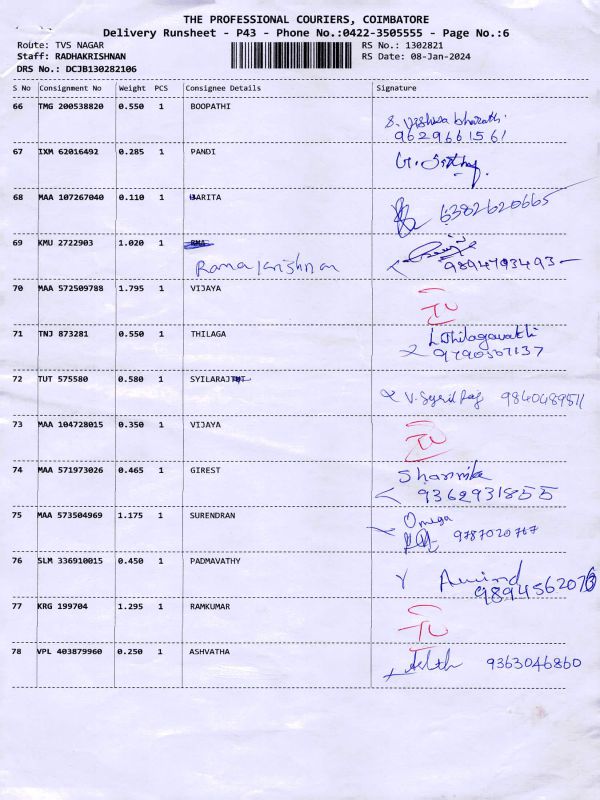 THE PROFESSIONAL COURIERS, COIMBATORE
Delivery Runsheet - P43 - Phone No.:0422-3505555 - Page No.:6
Route: TVS NAGAR RS No.: 1302821
Staff: RADHAKRISHNAN RS Date: 08-Jan-2024
DRS No.: DCJB130282106
S No Consignment No Weight PCS Consignee Details Signature
66 TMG 200538820 0.550 1 BOOPATHI
S. Vishwa bharathi
9629661561
67 IXM 62016492 0.285 1 PANDI
68 MAA 107267040 0.110 1 BARITA
6382620665
69 KMU 2722903 1.020 1 RMA
Ramakrishnan 9894793493
70 MAA 572509788 1.795 1 VIJAYA
71 TNJ 873281 0.550 1 THILAGA
L. Thilagavathi
9790507137
72 TUT 575580 0.580 1 SYILARAJ
V. Syril Raj 9840489511
73 MAA 104728015 0.350 1 VIJAYA
74 MAA 571973026 0.465 1 GIREST
9362931855
75 MAA 573504969 1.175 1 SURENDRAN
Omega
9787020767
76 SLM 336910015 0.450 1 PADMAVATHY
Arvind
77 KRG 199704 1.295 1 RAMKUMAR
78 VPL 403879960 0.250 1 ASHVATHA
9363046860